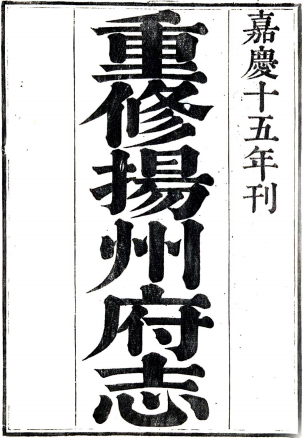 嘉慶十五年刊
重修揚州府志